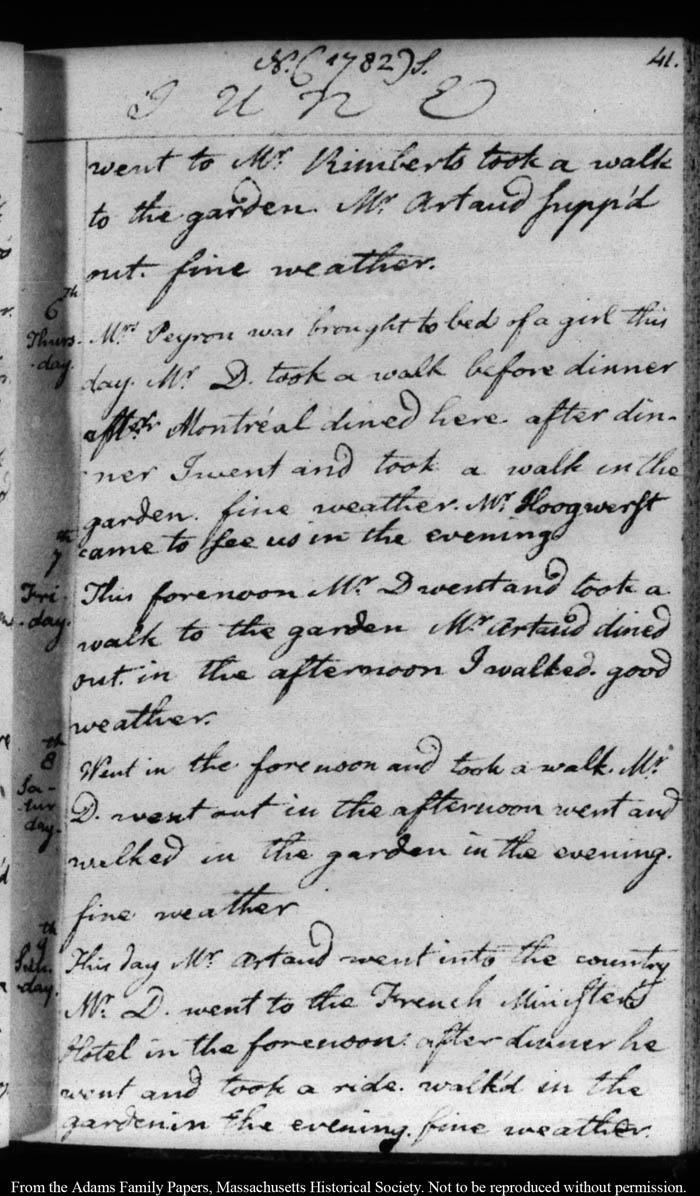 N.(1782)S. 41.
J U N E
went to Mr. Rimberts took a walk
to the garden. Mr. Artaud supp'd
out. fine weather.
6th
Thurs-
-day.
Mrs Peyron was brought to bed of a girl this
day. Mr. D. took a walk before dinner
Montréal dined here after din-
ner I went and took a walk in the
garden. fine weather. Mr. Hoogwerft
came to see us in the evening
7th
Fri-
-day.
This forenoon Mr. D went and took a
walk to the garden Mr. Artaud dined
out. in the afternoon I walked. good
weather.
8th
Sa-
tur
day.
Went in the forenoon and took a walk. Mr.
D. went out in the afternoon went and
walked in the garden in the evening.
fine weather
9th
Sun-
-day.
This day Mr. Artaud went into the country
Mr. D. went to the French Minister's
Hotel in the forenoon: after dinner he
went and took a ride. walk'd in the
garden in the evening. fine weather.
From the Adams Family Papers, Massachusetts Historical Society. Not to be reproduced without permission.